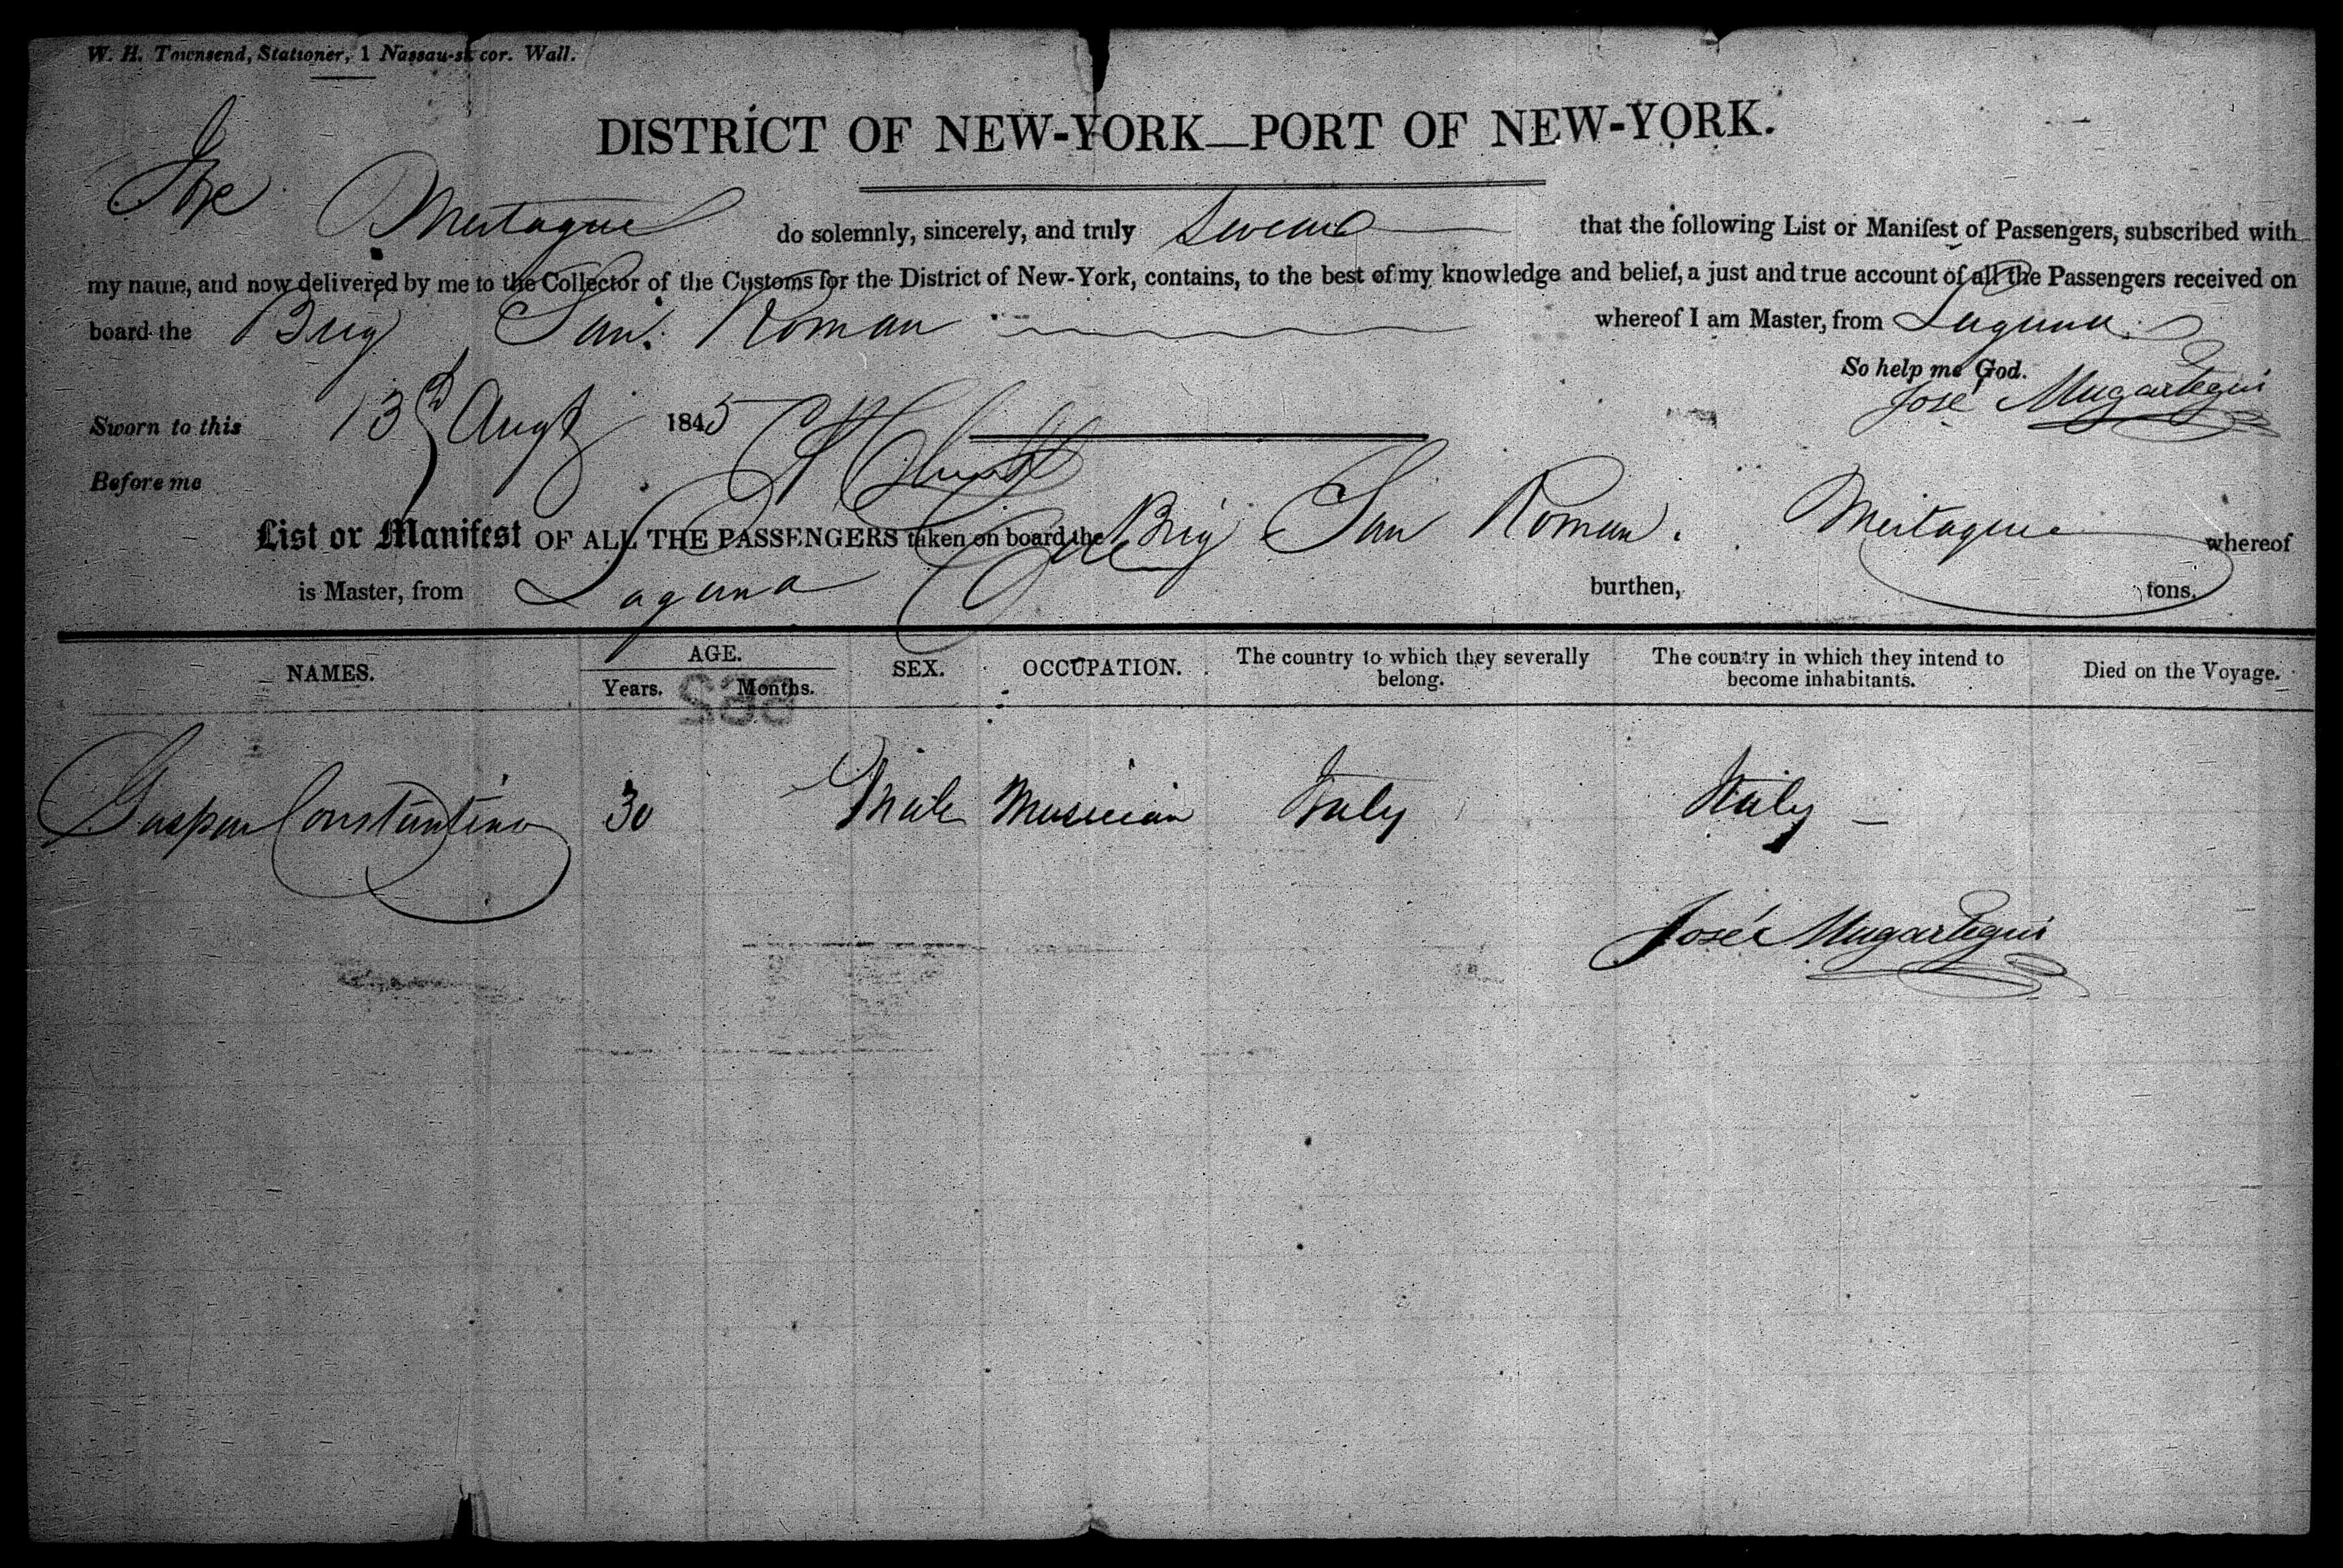 W. H. Townsend, Stationer, 1 Nassau-st. cor. Wall.
DISTRICT OF NEW-YORK—PORT OF NEW-YORK.
Jose do solemnly, sincerely, and truly Swear that the following List or Manifest of Passengers, subscribed with
my name, and now delivered by me to the Collector of the Customs for the District of New-York, contains, to the best of my knowledge and belief, a just and true account of all the Passengers received on
board the Brig San Roman whereof I am Master, from Laguna
So help me God.
José Mugartegui
Sworn to this 13 Augt 1845
Before me
List or Manifest OF ALL THE PASSENGERS taken on board the Brig San Roman. whereof
is Master, from Laguna burthen, tons.
NAMES. AGE. SEX. OCCUPATION. The country to which they severally belong. The country in which they intend to become inhabitants. Died on the Voyage.
Years. Months.
Gaspar Constantino 30 Male Musician Italy Italy –
José Mugartegui